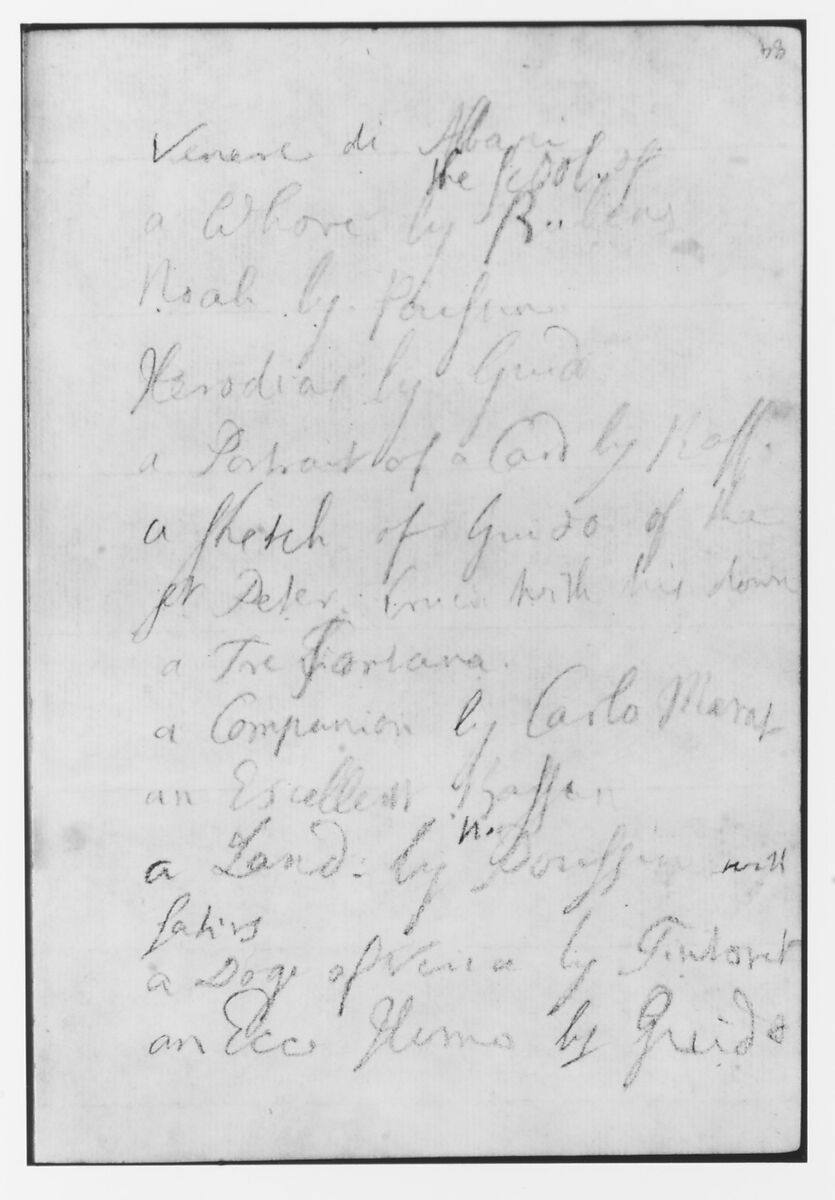 68
Venere di Albani
the scool of
a Whore by Rubens
Noah by Poussin
Herodias by Guid
a Portrait of a Card by Raff.
a sketch of Guido of the
st Peter. with his down
a Tre Fontana.
a Companion by Carlo Marat
an Excellent Bassan
a Land: by N. Poussin with
Satirs
a Doge of Venice by Tintoret
an Ecce Homo by Guido